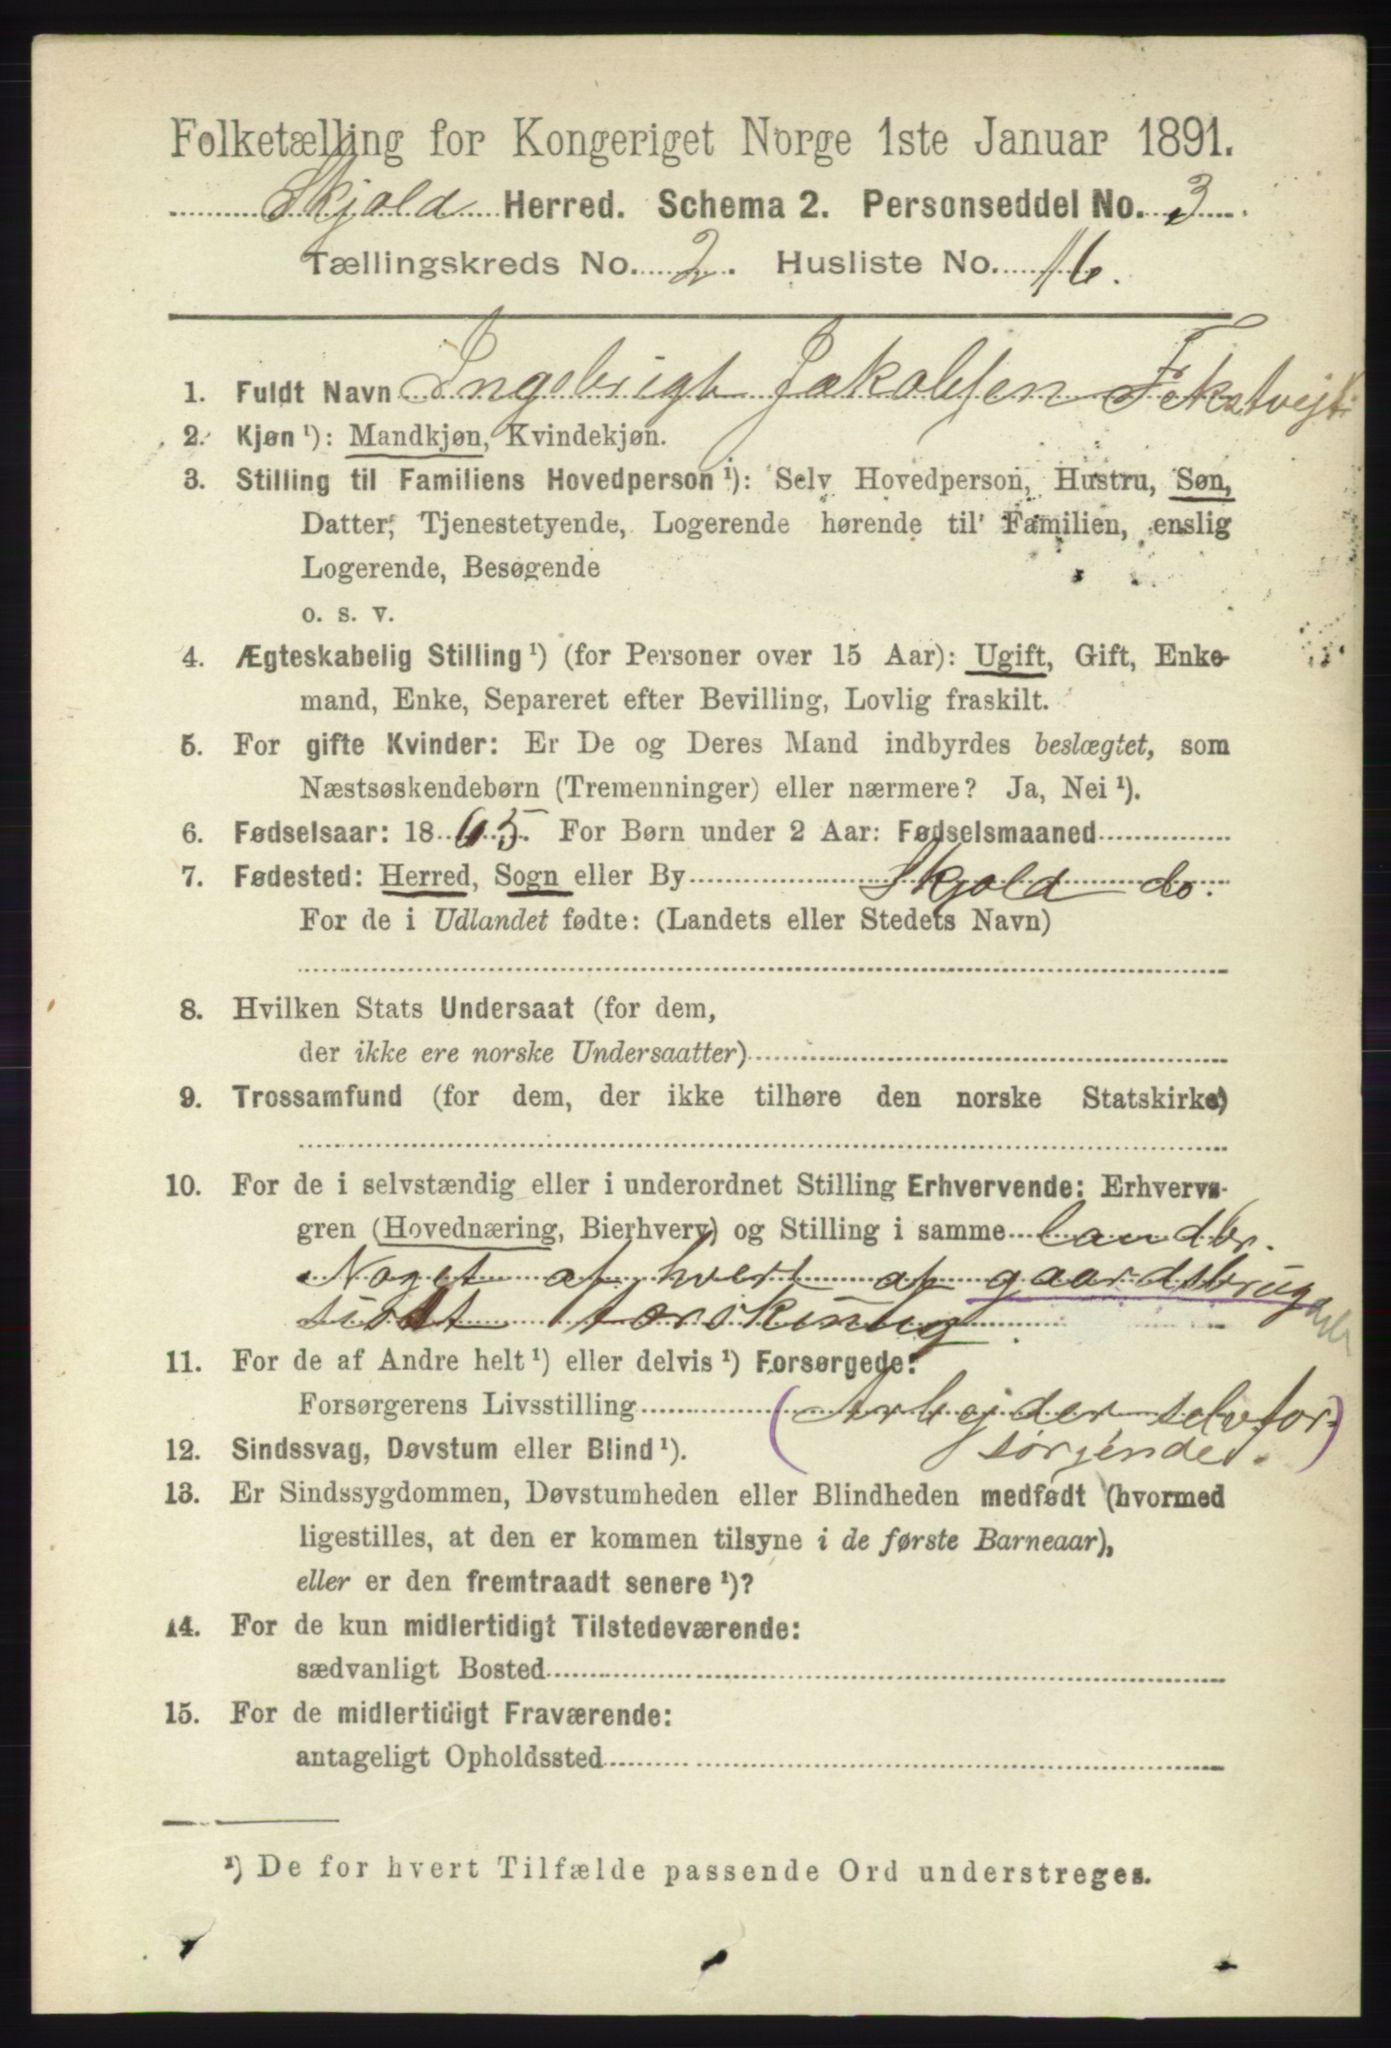 Folketælling for Kongeriget Norge 1ste Januar 1891.
Skjold Herred. Schema 2. Personseddel No. 3
Tællingskreds No. 2. Husliste No. 16.
1. Fuldt Navn Ingebrigt Jakobsen Fikstvejt
2. Kjøn ¹): Mandkjøn, Kvindekjøn.
3. Stilling til Familiens Hovedperson ¹): Selv Hovedperson, Hustru, Søn,
Datter, Tjenestetyende, Logerende hørende til Familien, enslig
Logerende, Besøgende
o. s. v.
4. Ægteskabelig Stilling ¹) (for Personer over 15 Aar): Ugift, Gift, Enke-
mand, Enke, Separeret efter Bevilling, Lovlig fraskilt.
5. For gifte Kvinder: Er De og Deres Mand indbyrdes beslægtet, som
Næstsøskendebørn (Tremenninger) eller nærmere? Ja, Nei ¹).
6. Fødselsaar: 1865. For Børn under 2 Aar: Fødselsmaaned
7. Fødested: Herred, Sogn eller By Skjold do.
For de i Udlandet fødte: (Landets eller Stedets Navn)
8. Hvilken Stats Undersaat (for dem,
der ikke ere norske Undersaatter)
9. Trossamfund (for dem, der ikke tilhøre den norske Statskirke)
10. For de i selvstændig eller i underordnet Stilling Erhvervende: Erhvervs-
gren (Hovednæring, Bierhverv) og Stilling i samme landbr.
Noget af hvert af gaardsbrug
sidst tærskning
11. For de af Andre helt ¹) eller delvis ¹) Forsørgede:
Forsørgerens Livsstilling (Arbejder selvfor-
12. Sindssvag, Døvstum eller Blind ¹). sørgende.)
13. Er Sindssygdommen, Døvstumheden eller Blindheden medfødt (hvormed
ligestilles, at den er kommen tilsyne i de første Barneaar),
eller er den fremtraadt senere ¹)?
14. For de kun midlertidigt Tilstedeværende:
sædvanligt Bosted
15. For de midlertidigt Fraværende:
antageligt Opholdssted
¹) De for hvert Tilfælde passende Ord understreges.